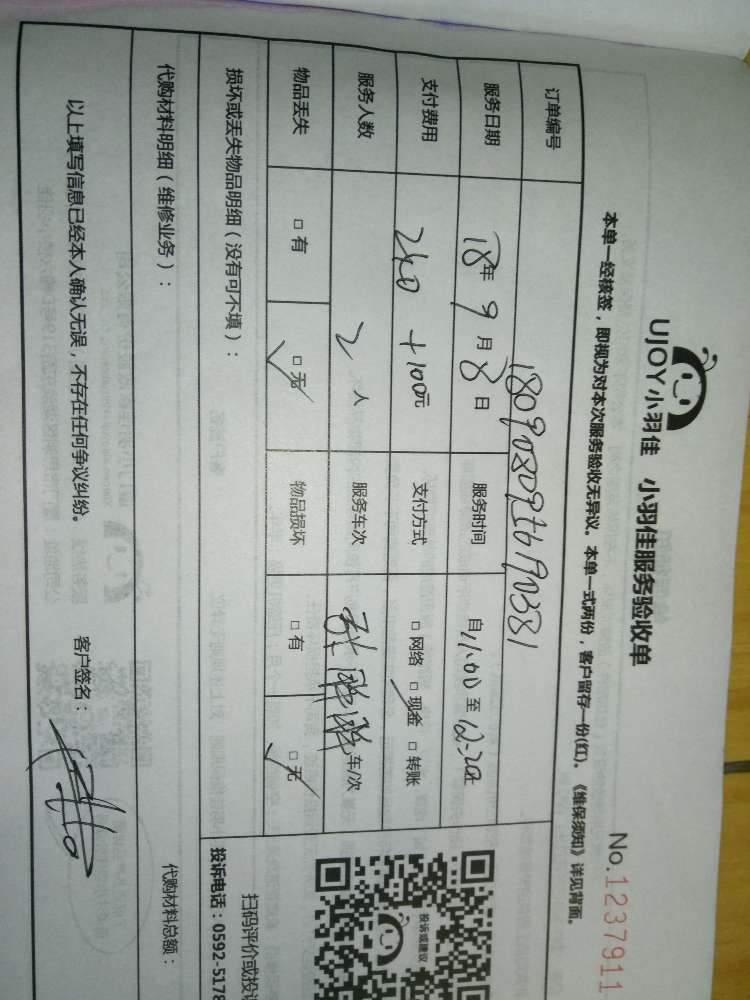 UJOY小羽佳 小羽佳服务验收单
No.1237911
本单一经核签，即视为对本次服务验收无异议。本单一式两份，客户留存一份(红)。《维保须知》详见背面。
订单编号
服务日期 18年 9月 8日 服务时间 自11:00至12:20
支付费用 240+100元 支付方式 □网络 □现金 □转账
服务人数 2人 服务车次 车/次
物品丢失 □有 □无 物品损坏 □有 □无
损坏或丢失物品明细（没有可不填）：
投诉或建议
扫码评价或投
投诉电话：0592-5178
代购材料明细（维修业务）：
代购材料总额：
以上填写信息已经本人确认无误，不存在任何争议纠纷。
客户签名：